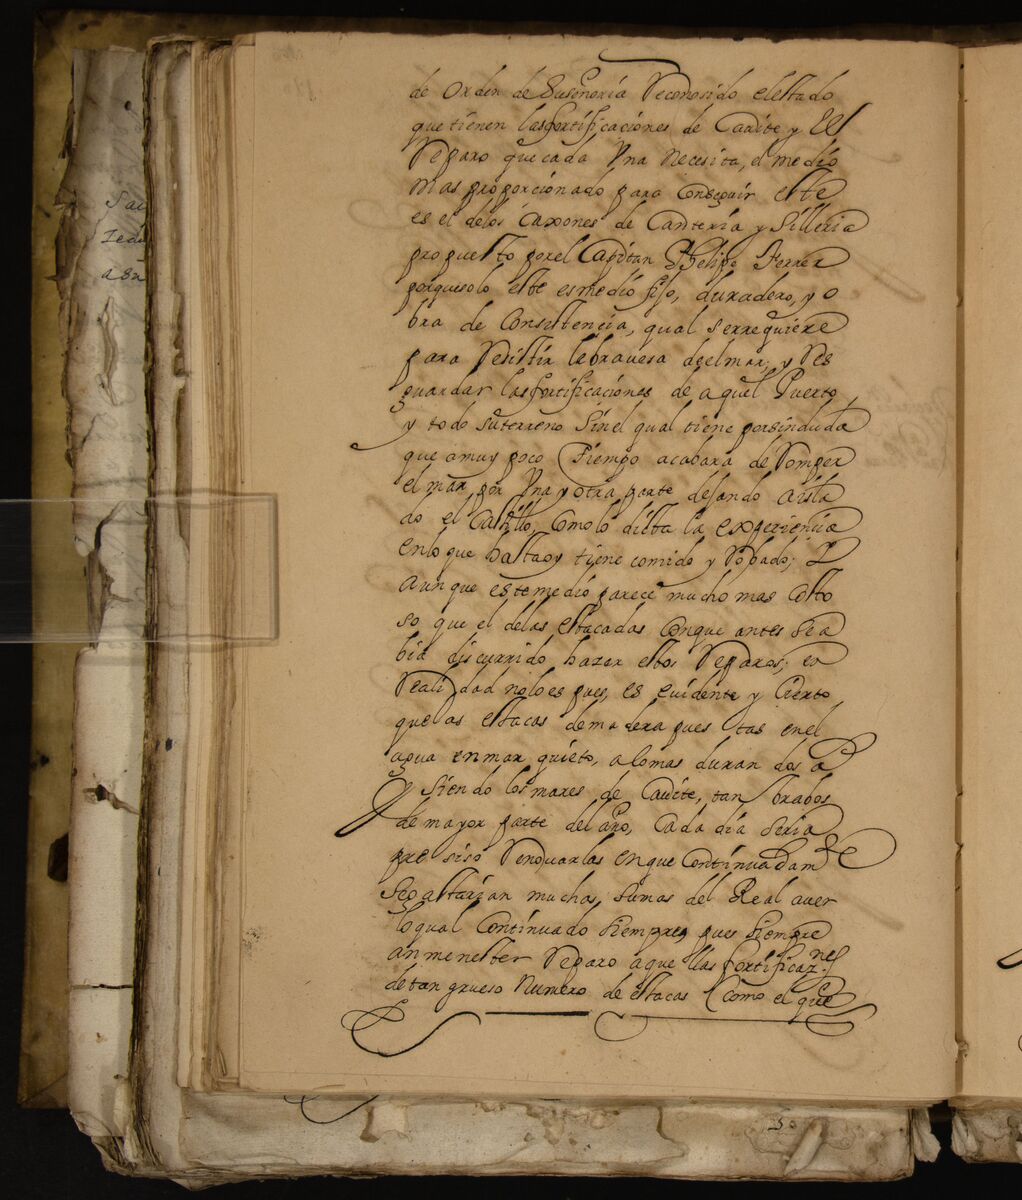 de orden de Vuseñoria Reconosido el estado
que tienen las fortificaciones de Cavite y el
Reparo que cada Vna Necesita, el medio
mas proporcionado para Conseguir este
es el de los Caxones de Canteria y Silleria
propuesto por el Capitan Phelipe Ferrer
porque solo este es medio fijo, duradero, y o
bra de Consistencia, qual se rrequiere
para Resistir la bravesa de el mar; y Res
guardar las fortificaciones de aquel Puerto,
y todo su terreno Sin el qual tiene por sin duda
que a muy poco Tiempo acabara de Romper
el mar por Vna y otra parte dejando aisla
do el Castillo, Como lo dicta la experiencia
en lo que hasta oy tiene comido y Robado; Y
aunque este medio parece mucho mas Costo
so que el de las estacadas Con que antes se a
bia discurrido hazer estos Reparos; en
Realidad no lo es pues, es evidente y Cierto
que las estacas de madera puestas en el
agua en mar quieto, a lo mas duran dos a
y siendo los mares de Cavite, tan brabos
de mayor parte del año, Cada dia seria
presiso Renovarlas en que Continuadamte
se gastarian muchas sumas del Real aver
lo qual Continuado siempre, pues siempre
an menester Reparo aquellas fortificaznes
de tan grueso Numero de estacas Como el que
Sai
a su